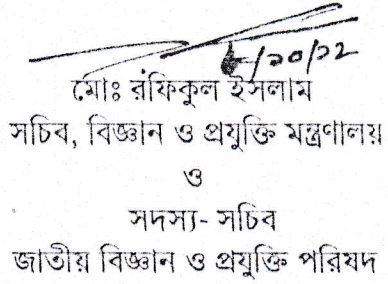 ৮/১০/১২
মোঃ রফিকুল ইসলাম
সচিব, বিজ্ঞান ও প্রযুক্তি মন্ত্রণালয়
ও
সদস্য- সচিব
জাতীয় বিজ্ঞান ও প্রযুক্তি পরিষদ